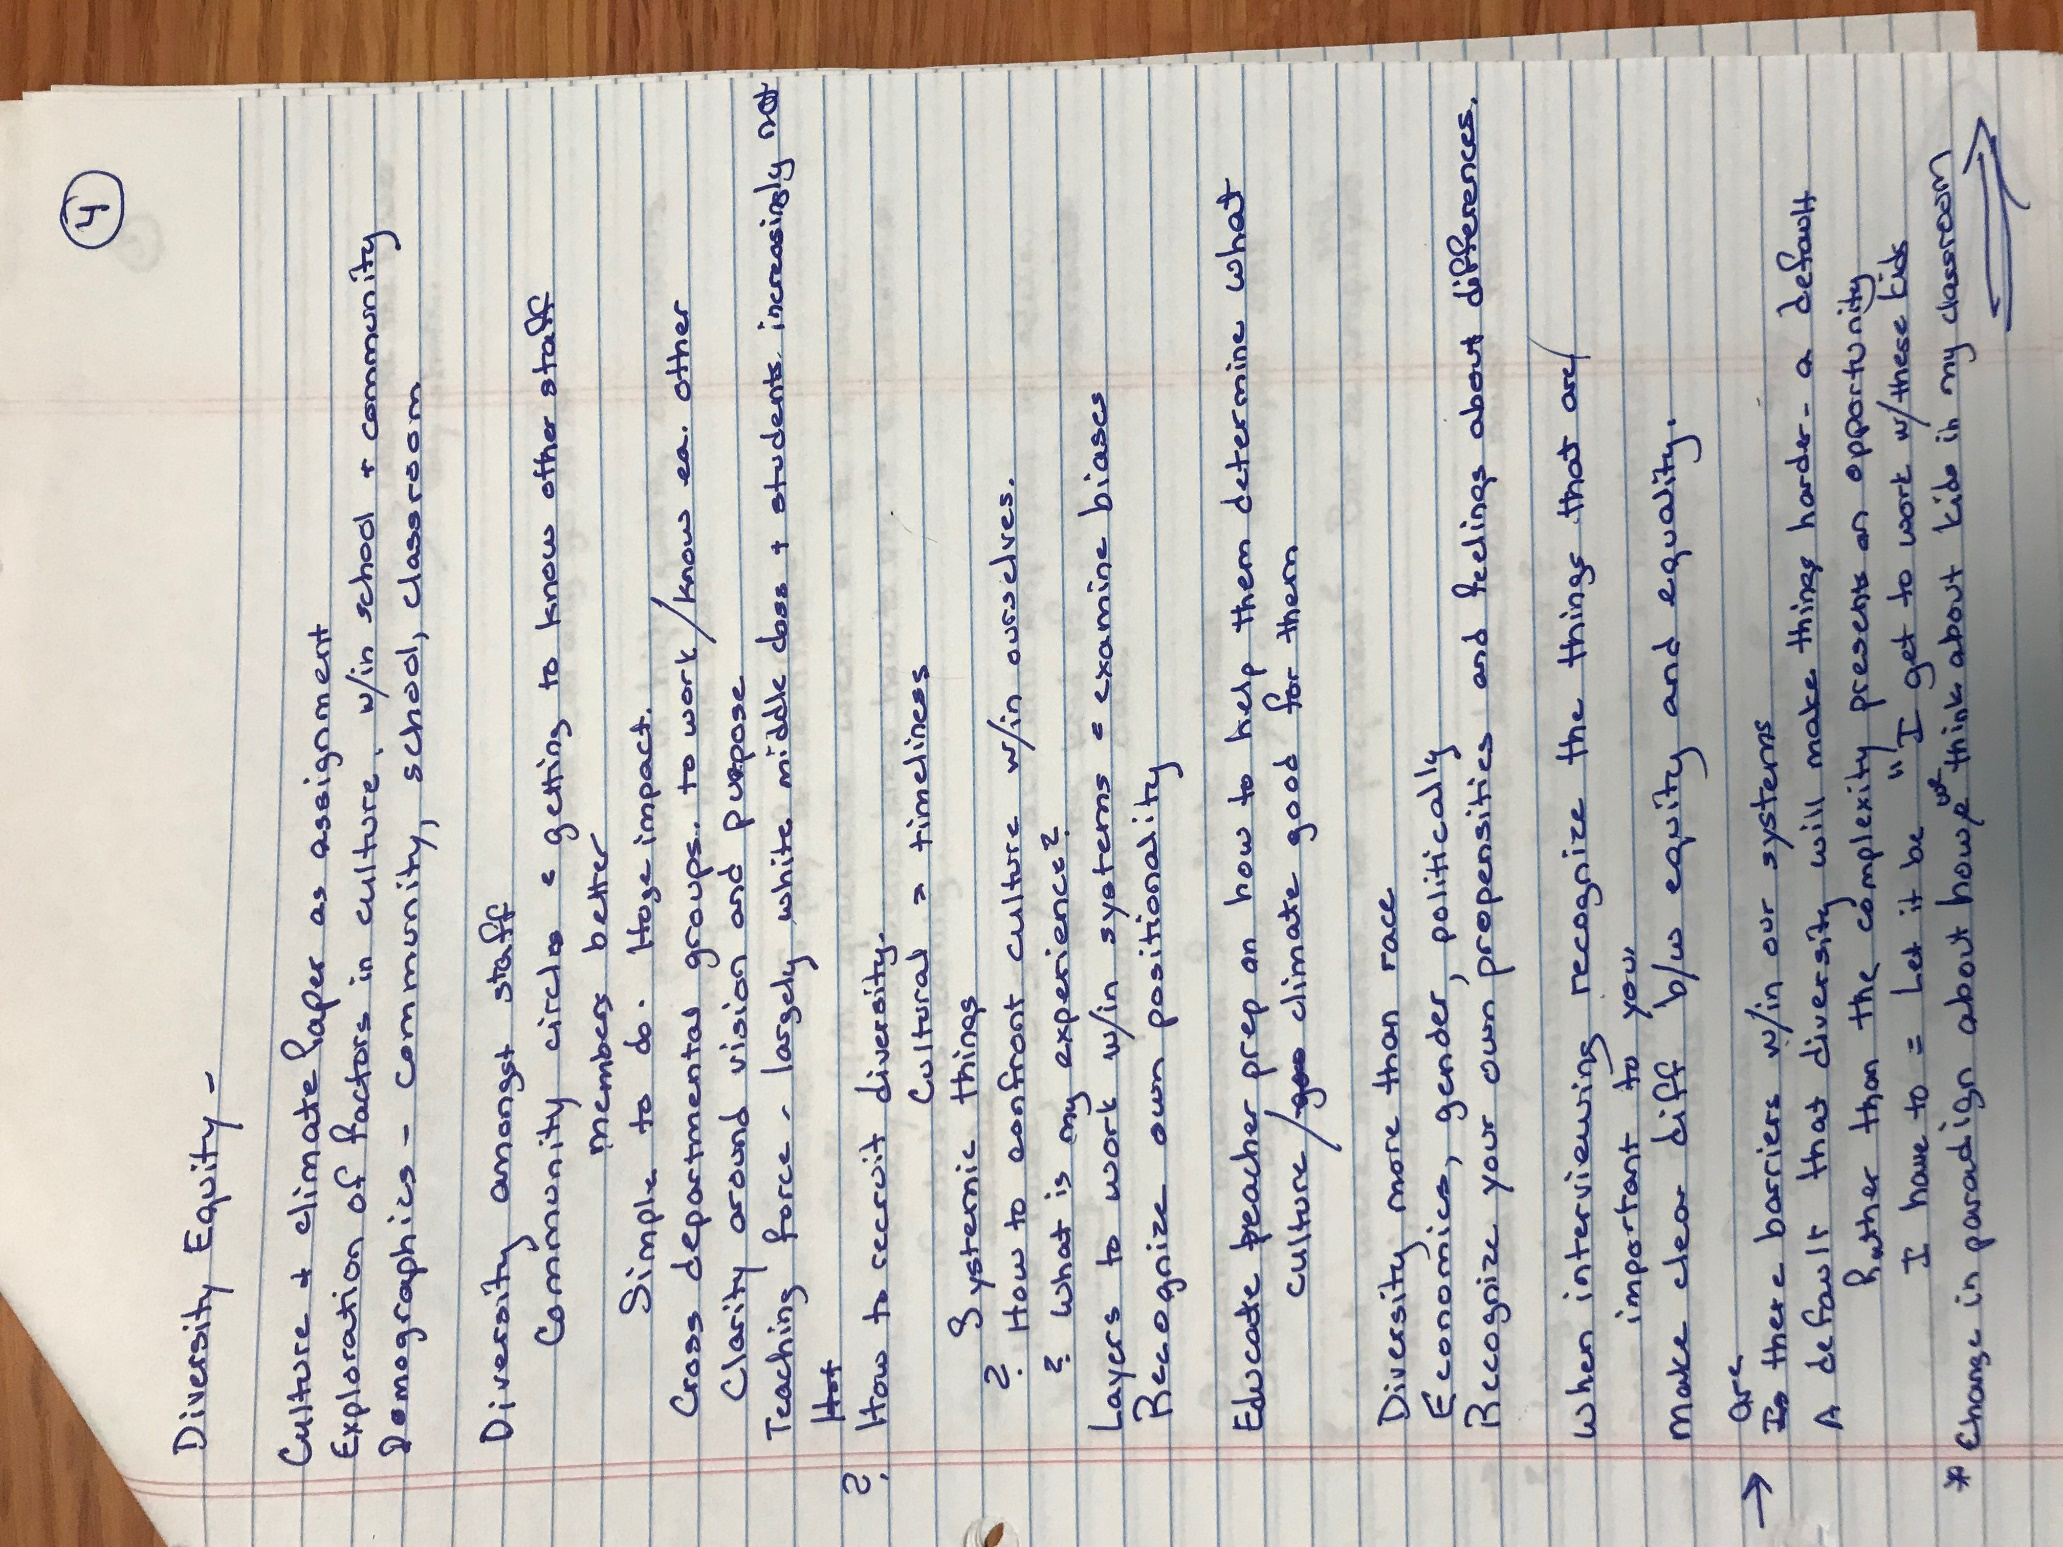 4
Diversity Equity -
Culture + climate paper as assignment
Exploration of factors in culture, w/in school + community
Demographics - community, school, classroom
Diversity amongst staff
Community circles e getting to know other staff
members better
Simple to do. Huge impact.
Cross departmental groups. to work/know ea. other
Clarity around vision and purpose
Teaching force - largely white middle class + students increasingly not
Hot
? How to recruit diversity.
Cultural > timeliness
Systemic things
? How to confront culture w/in ourselves.
? What is my experience?
Layers to work w/in systems e examine biases
Recognize own positionality
Educate teacher prep on how to help them determine what
culture/goo climate good for them
Diversity more than race
Economics, gender, politically
Recognize your own propensities and feelings about differences.
When interviewing recognize the things that are/
important to you.
Make clear diff b/w equity and equality.
Are
→ Is there barriers w/in our systems
A default that diversity will make things harder - a default
Rather than the complexity presents an opportunity
I have to = Let it be "I get to work w/these kids
* Change in paradign about how we think about kids in my classroom